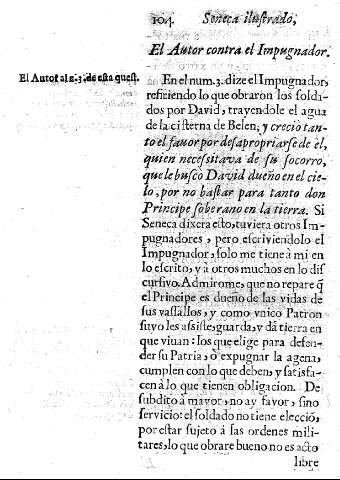 104. Seneca ilustrado,
El Autor contra el Impugnador.
El Autor al n. 3. de esta quest.
En el num. 3. dize el Impugnador,
refiriendo lo que obraron los solda-
dos por David, trayendole el agua
de la cisterna de Belen; y creciò tan-
to el fauor por desapropriarse de el,
quien necessitava de su socorro,
que le buscò David dueño en el cie-
lo, por no bastar para tanto don
Principe soberano en la tierra. Si
Seneca dixera esto, tuviera otros Im-
pugnadores, pero escriviendolo el
Impugnador, solo me tiene à mi en
lo escrito, y à otros muchos en lo dis
cursivo. Admirome, que no repare q̃
el Principe es dueño de las vidas de
sus vassallos, y como vnico Patron
suyo les assiste, guarda, y dà tierra en
que viuan: los que elige para defen-
der su Patria, ò expugnar la agena,
cumplen con lo que deben, y satisfa-
cen à lo que tienen obligacion. De
subdito à mayor, no ay favor, sino
servicio: el soldado no tiene elecciõ,
por estar sujeto à las ordenes mili-
tares, lo que obrare bueno no es acto
libre